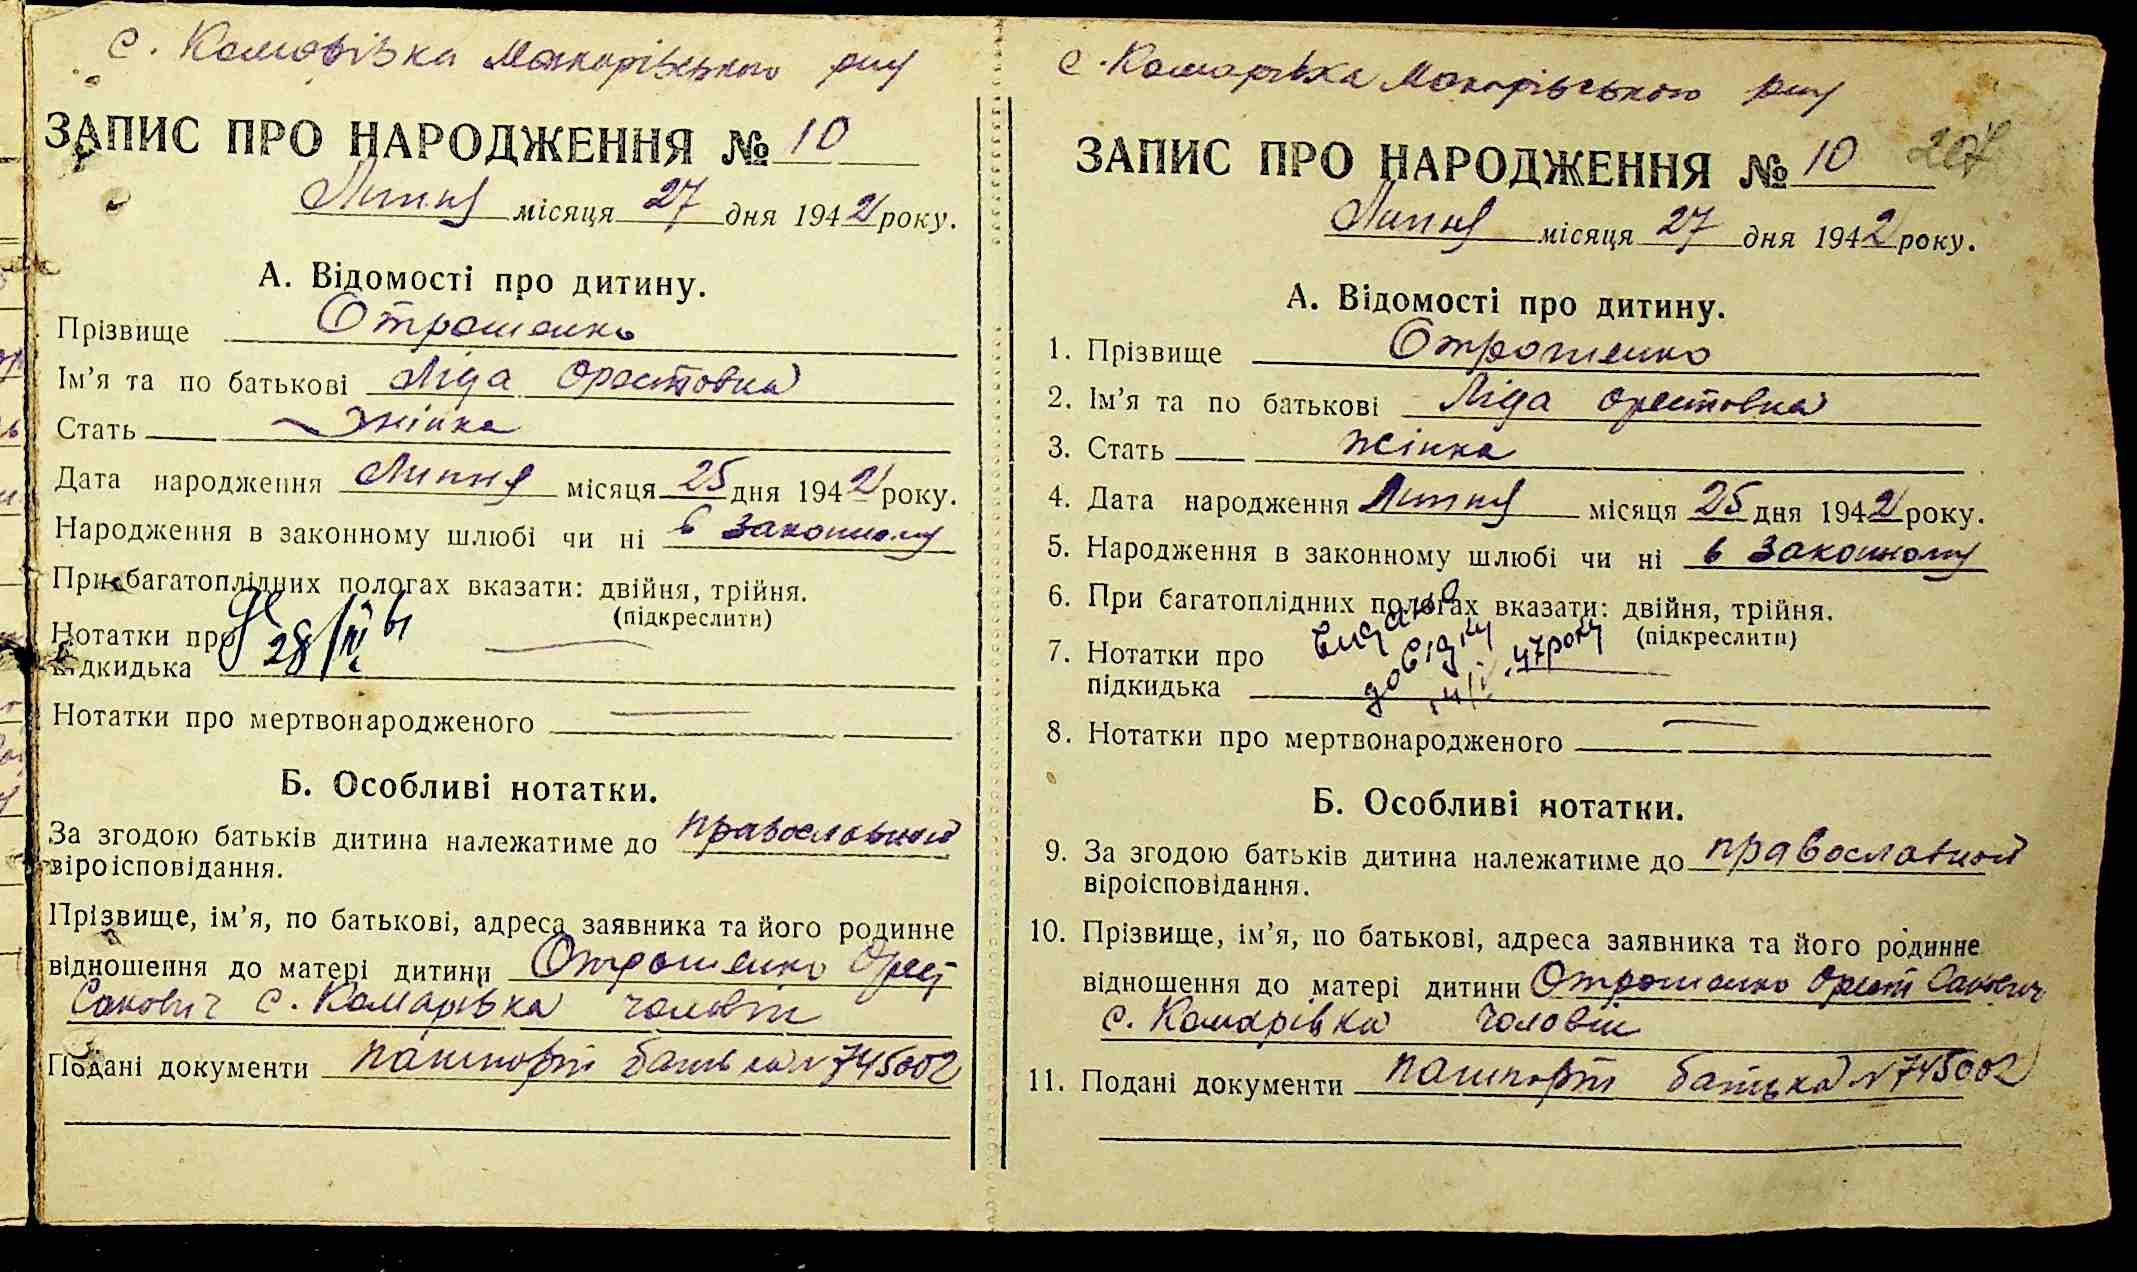 с. Комарівка Макарівського р-ну
ЗАПИС ПРО НАРОДЖЕННЯ № 10
Липня місяця 27 дня 1942 року.
А. Відомості про дитину.
Прізвище Отрошенко
Ім’я та по батькові Ліда Орестовна
Стать жінка
Дата народження Липня місяця 25 дня 1942 року.
Народження в законному шлюбі чи ні в законному
При багатоплідних пологах вказати: двійня, трійня.
(підкреслити)
Нотатки про
підкидька
Нотатки про мертвонародженого —
Б. Особливі нотатки.
За згодою батьків дитина належатиме до православной
віроісповідання.
Прізвище, ім’я, по батькові, адреса заявника та його родинне
відношення до матері дитини Отрошенко Орест
Сакович с. Комарівка чоловік
Подані документи пашпорт батька N 745002
с. Комарівка Макарівського р-ну
ЗАПИС ПРО НАРОДЖЕННЯ № 10 207
Липня місяця 27 дня 1942 року.
А. Відомості про дитину.
1. Прізвище Отрошенко
2. Ім’я та по батькові Ліда Орестовна
3. Стать жінка
4. Дата народження Липня місяця 25 дня 1942 року.
5. Народження в законному шлюбі чи ні в законному
6. При багатоплідних пологах вказати: двійня, трійня.
(підкреслити)
7. Нотатки про
підкидька
видано
довідку
47 року
8. Нотатки про мертвонародженого —
Б. Особливі нотатки.
9. За згодою батьків дитина належатиме до православной
віроісповідання.
10. Прізвище, ім’я, по батькові, адреса заявника та його родинне
відношення до матері дитини Отрошенко Орест Сакович
с. Комарівка чоловік
11. Подані документи пашпорт батька N 745002